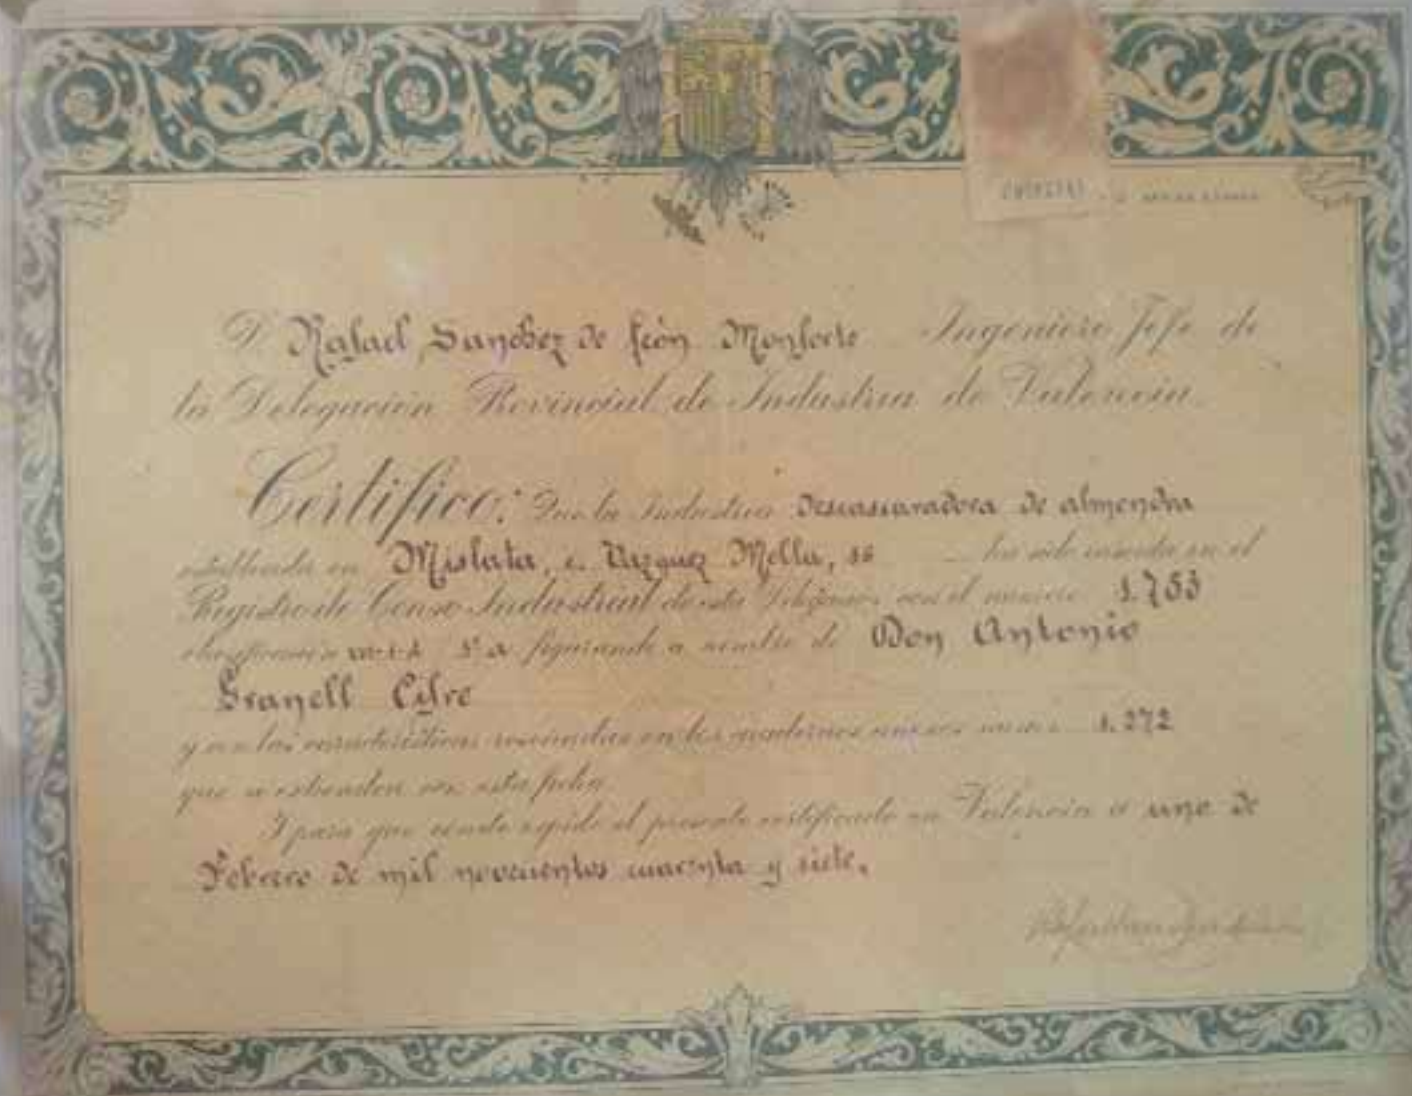 D. Rafael Sanchez de León Monforte Ingeniero Jefe de
la Delegación Provincial de Industria de Valencia.
Certifico: Que la Industria descascaradora de almendra
establecida en Mislata, c. Vazquez Mella, 16 ha sido inscrita en el
Registro de Censo Industrial de esta Delegación con el número 1.753
clasificación figurando a nombre de Don Antonio
Granell Cifre
y con las características reseñadas en los cuadernos anexos 1.272
que se extienden con esta fecha
Y para que conste expido el presente certificado en Valencia a uno de
Febrero de mil novecientos cuarenta y siete.